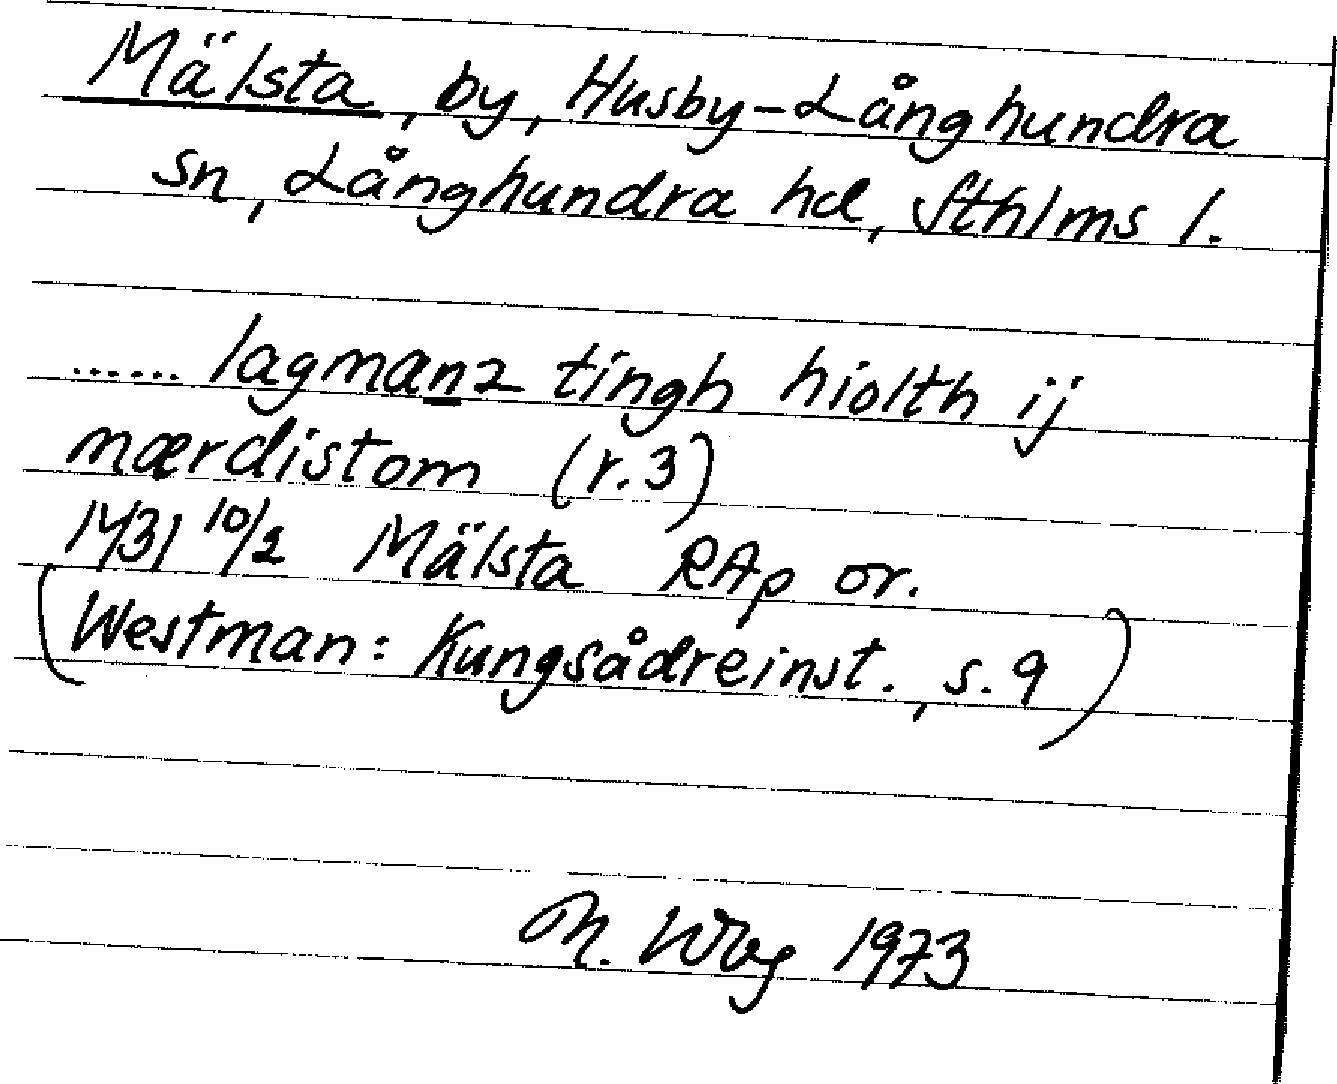 Mälsta, by, Husby-Långhundra
sn, Långhundra hd, Sthlms l.
...... lagmanz tingh hiolth ij
mærdistom (r.3)
1431 10/2 Mälsta RAp or.
(Westman: Kungsådreinst., s. 9)
M. Wbg 1973